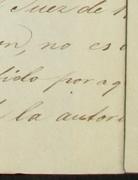 Juez de
en, no es
tido por aq
la autori